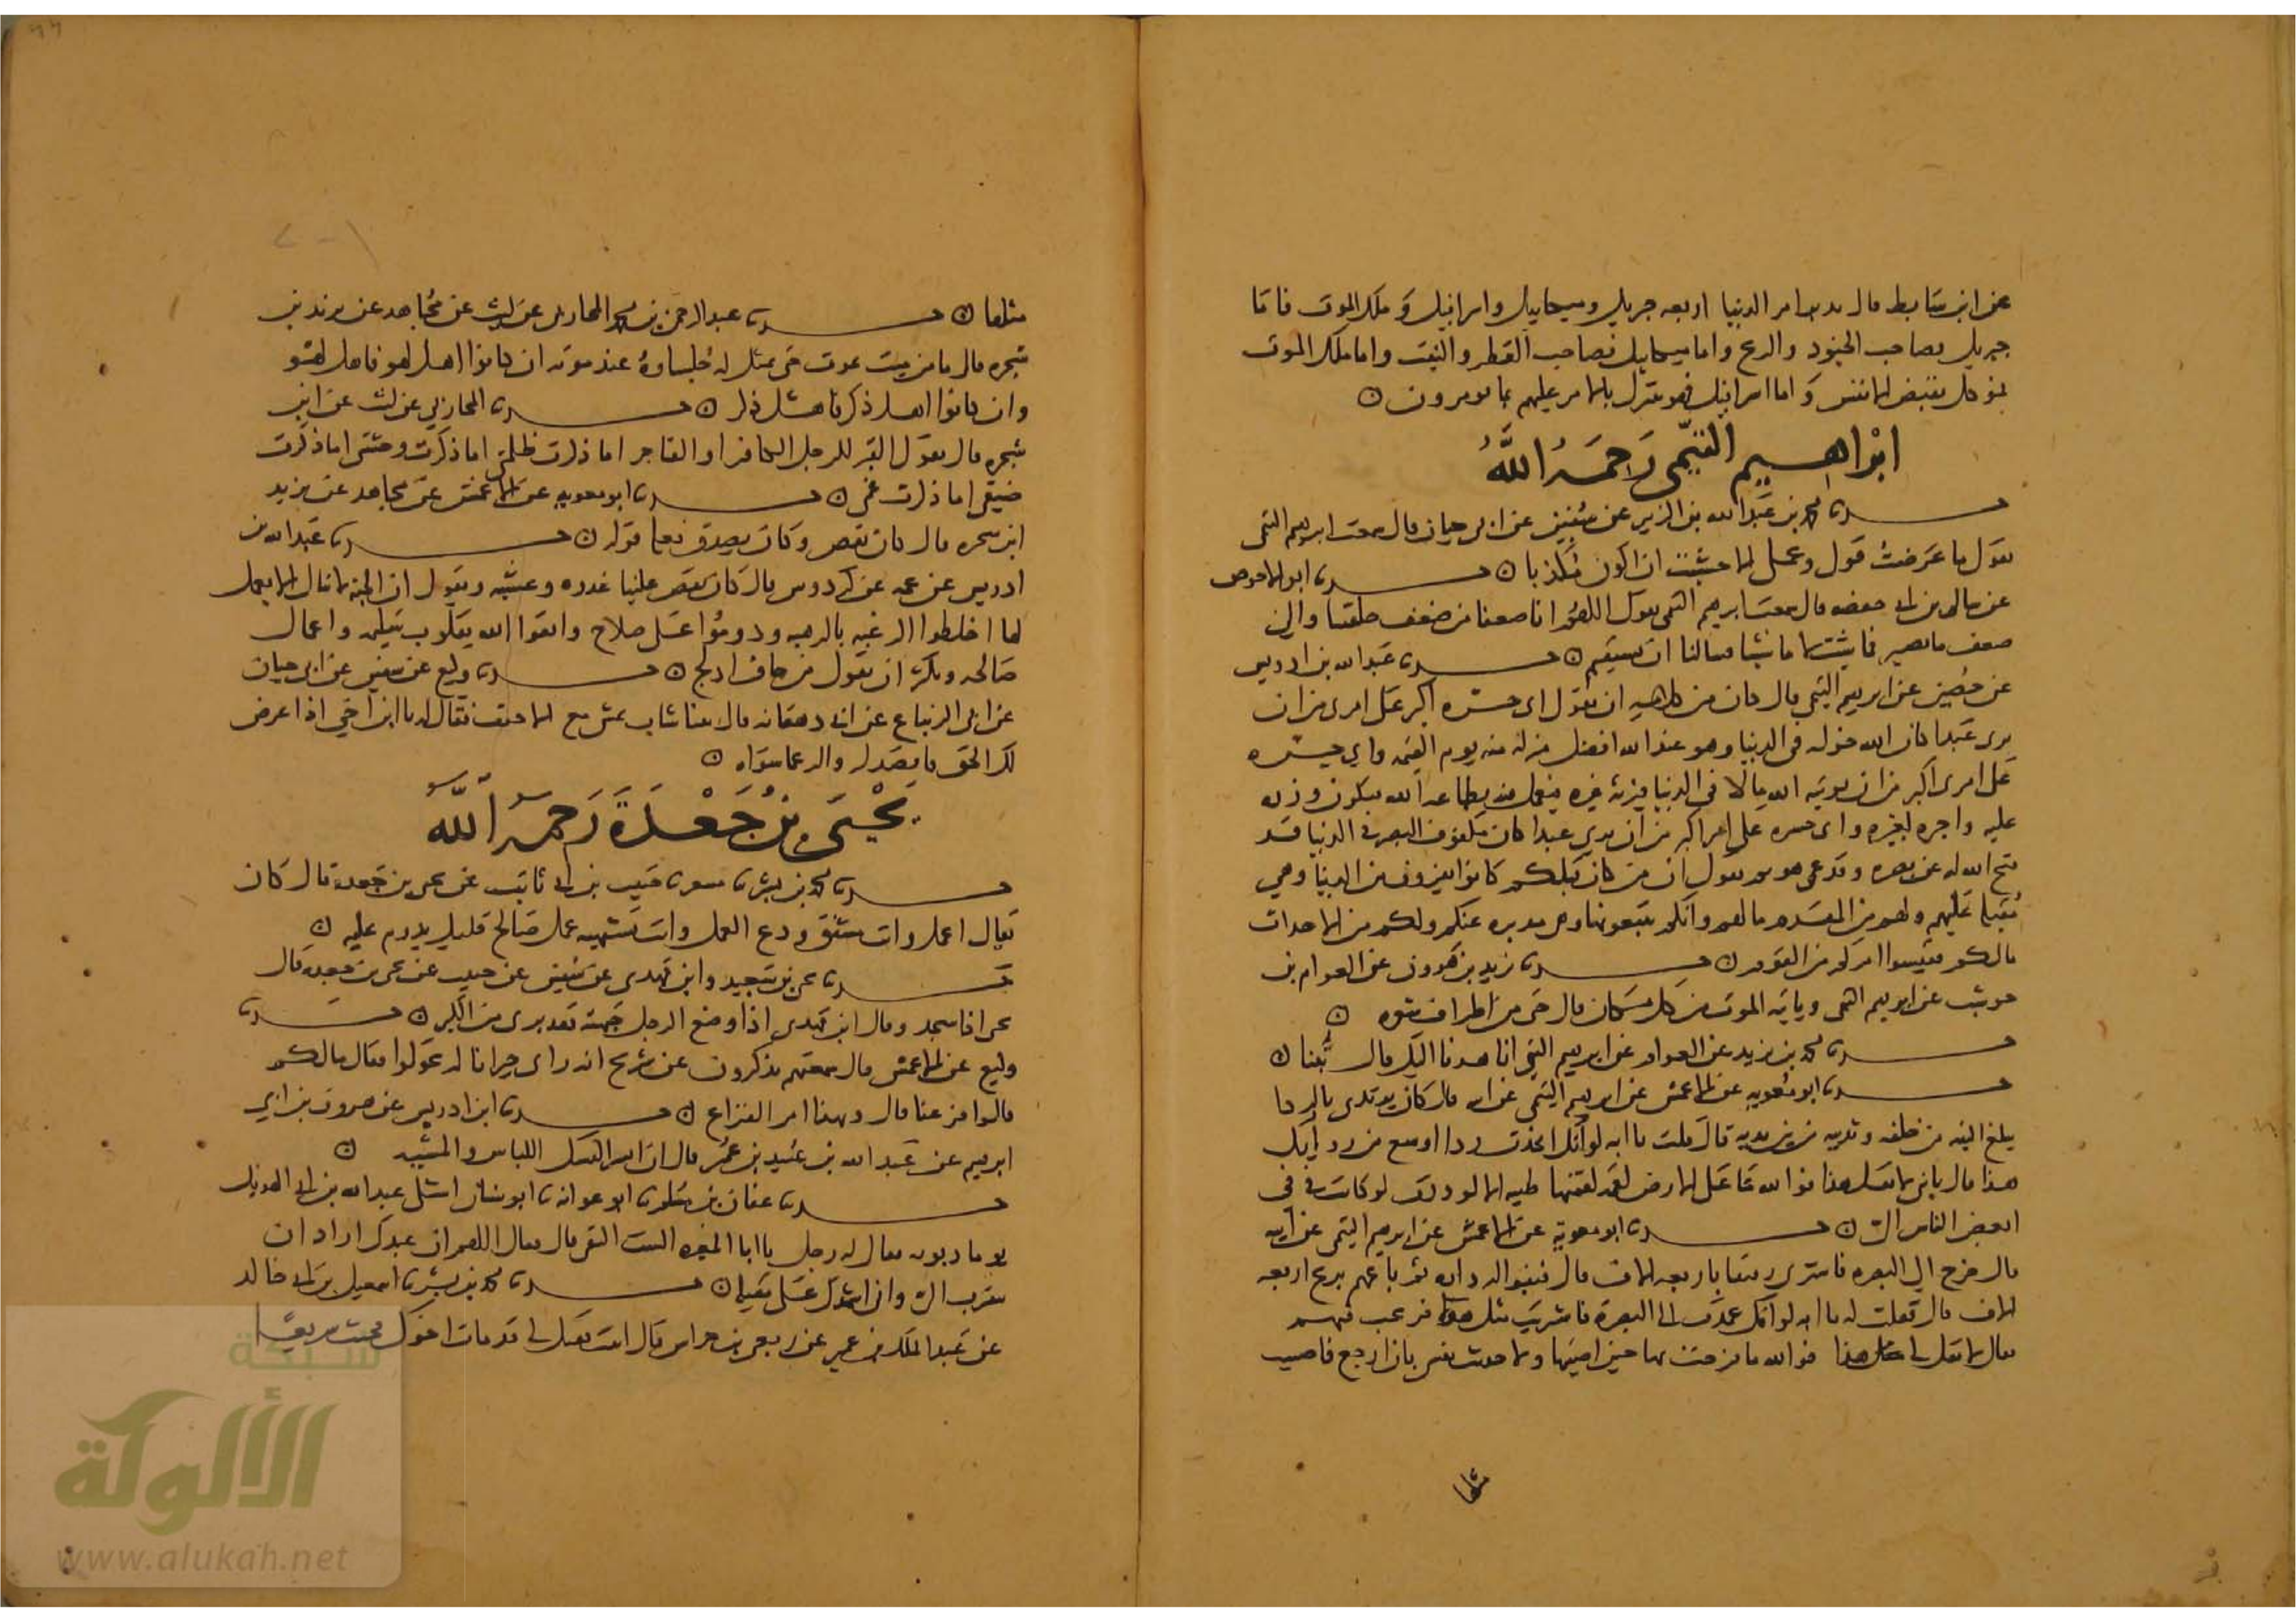 عن ابن سابط قال يدبر امر الدنيا اربعه جبريل وميكاييل واسرافيل وملك الموت فاما
جبريل فصاحب الجنود والريح واما ميكاييل فصاحب القطر والنبت واما ملك الموت
فموكل بقبض الانفس واما اسرافيل فهو يتنزل بالامر عليهم بما يومرون
ابراهيم التيمي رحمه الله
حدثنا محمد بن عبد الله بن الزبير عن سفين عن ابي حيان قال سمعت ابرهيم التيمي
يقول ما عرضت قولي وعملي الا خشيت ان اكون مكذبا حدثنا ابو الاحوص
عن سالم بن ابي حفصه قال سمعت ابرهيم التيمي يقول اللهم انا ضعفا من ضعف خلقتنا والى
ضعف ما نصير فما شئت لا ما نشا فسالنا ان نستقيم حدثنا عبد الله بن ادريس
عن حصين عن ابرهيم التيمي قال كان من كلامه ان يقول اي حسره اكبر على امرى من ان
يرى عبدا كان الله خوله في الدنيا وهو عند الله افضل منزلة منه يوم القيمه واي حسره
على امرى اكبر من ان يوتيه الله مالا في الدنيا فيرثه غيره فيعمل فيه بطاعه الله فيكون وزره
عليه واجره لغيره واي حسره على امرى اكبر من ان يرى عبدا كان مكفوف البصر في الدنيا قد
فتح الله له عن بصره وقد عمي هو ثم يقول ان من كان قبلكم كانوا يفرون من الدنيا وهي
مقبلة عليهم ولهم من القدم ما لهم وانكم تتبعونها وهي مدبره عنكم ولكم من الاحداث
مالكم فقيسوا امركم من القوم حدثنا يزيد بن هرون عن العوام بن
حوشب عن ابرهيم التيمي وياتيه الموت من كل مكان قال حتى من اطراف شعره
حدثنا محمد بن يزيد عن العوام عن ابرهيم التيمي انا هدنا اليك قال تبنا
حدثنا ابو معويه عن الاعمش عن ابرهيم التيمي عن ابيه قال كان يرتدي بالردا
يبلغ اليته من خلفه وثدييه من بين يديه قال قلت يا ابه لو انك اتخذت ردا اوسع من ردايك
هذا قال يا بني لا تقل هذا فوالله ما على الارض لقمه لقمتها طيبه الا لوددت لو كانت في في
ابغض الناس الي حدثنا ابو معويه عن الاعمش عن ابرهيم التيمي عن ابيه
قال خرج الى البصره فاشترى رقيقا باربعه الاف قال فبنوا له داره ثم باعهم بربح اربعه
الاف قال فقلت له يا ابه لو انك عمدت الى البصره فاشتريت مثل هولا فربحت فيهم
فقال لا تقل لي هذا فوالله ما فرحت بها حين اصبتها ولا حدثت نفسي بان ارجع فاصيب
مثلها
مثلها حدثنا عبد الرحمن بن محمد المحاربي عن ليث عن مجاهد عن يزيد بن
شجره قال ما من ميت يموت حتى يمثل له جلساوه عند موته ان كانوا اهل لهو فاهل لهو
وان كانوا اهل ذكر فاهل ذكر حدثنا المحاربي عن ليث عن ابن
شجره قال يقول القبر للرجل الكافر او الفاجر اما ذكرت ظلمتي اما ذكرت وحشتي اما ذكرت
ضيقي اما ذكرت غمي حدثنا ابو معويه عن الاعمش عن مجاهد عن يزيد
ابن شجره قال كان يقص وكان يصدق فعله قوله حدثنا عبد الله بن
ادريس عن عمه عن كردوس قال كان يقص علينا غدوه وعشيه ويقول ان الجنه لا تنال الا بعمل
لها اخلطوا الرغبه بالرهبه ودوموا على صلاح واتقوا الله بقلوب سليمه واعمال
صالحه ويكثر ان يقول من خاف ادلج حدثنا وكيع عن سفين عن ابي حيان
عن ابي الزنباع عن ابي دهقانه قال
لك الحق فاقصد له والدعا سواه
يحيى بن جعدة رحمه الله
حدثنا محمد بن بشر نا مسعر نا حبيب بن ابي ثابت عن يحيى بن جعده قال كان
يقال اعمل وانت مشفق ودع العمل وانت تشتهيه عمل صالح قليل يدوم عليه
حدثنا يحيى بن سعيد وابن مهدي عن سفين عن حبيب عن يحيى بن جعده قال
يحيى اذا سجد وقال ابن مهدي اذا وضع الرجل جبهته فقد برى من الكبر حدثنا
وكيع عن الاعمش قال سمعتهم يذكرون عن شريح انه راى جيرانا له يجولوا فقال مالكم
قالوا فرغنا قال وبهذا امر الفارغ حدثنا ابن ادريس عن هرون بن ابي
ابرهيم عن عبد الله بن عبيد بن عمير قال اللباس والمشيه
حدثنا عفان بن مسلم نا ابو عوانه نا ابو سنان عبد الله بن ابي الهذيل
يوما فقال له رجل يا ابا المغيره الست قال فقال اللهم ان عبدك اراد ان
يتقرب الي واني اشهدك على حدثنا محمد بن بشر نا اسمعيل بن ابي خالد
عن عبد الملك بن عمير عن ربعي بن حراش قال اتيت فقيل لي قد مات اخوك فجئت سريعا
شبكة
الألوكة
www.alukah.net